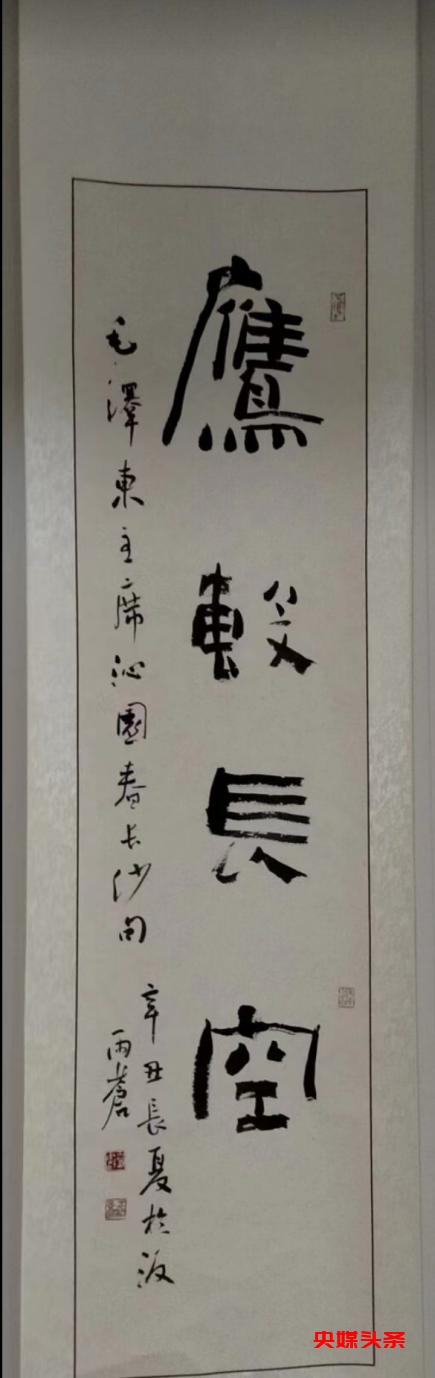 鷹毄長空
毛澤東主席沁園春长沙句
辛丑長夏於
雨蒼
央媒头条